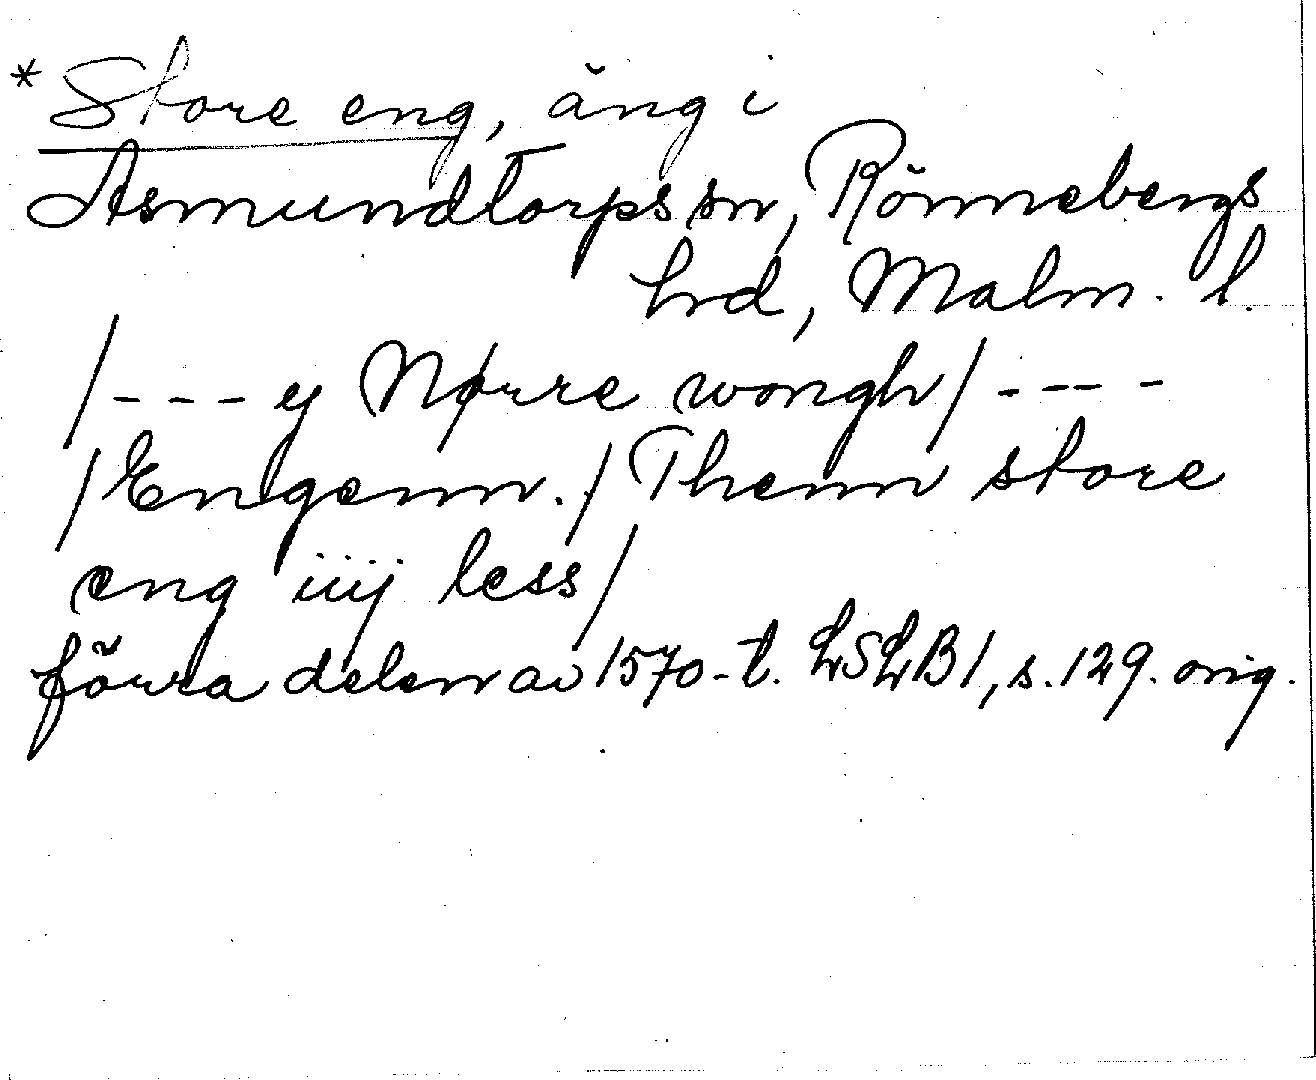 *Store eng, äng i
Asmundtorps sn, Rönnebergs
hrd, Malm. l.
/---y Nørre wongh/----
/Engenn./Thenn store
eng iiij less/
förra delen av 1570-t. LSLB1, s. 129. orig.